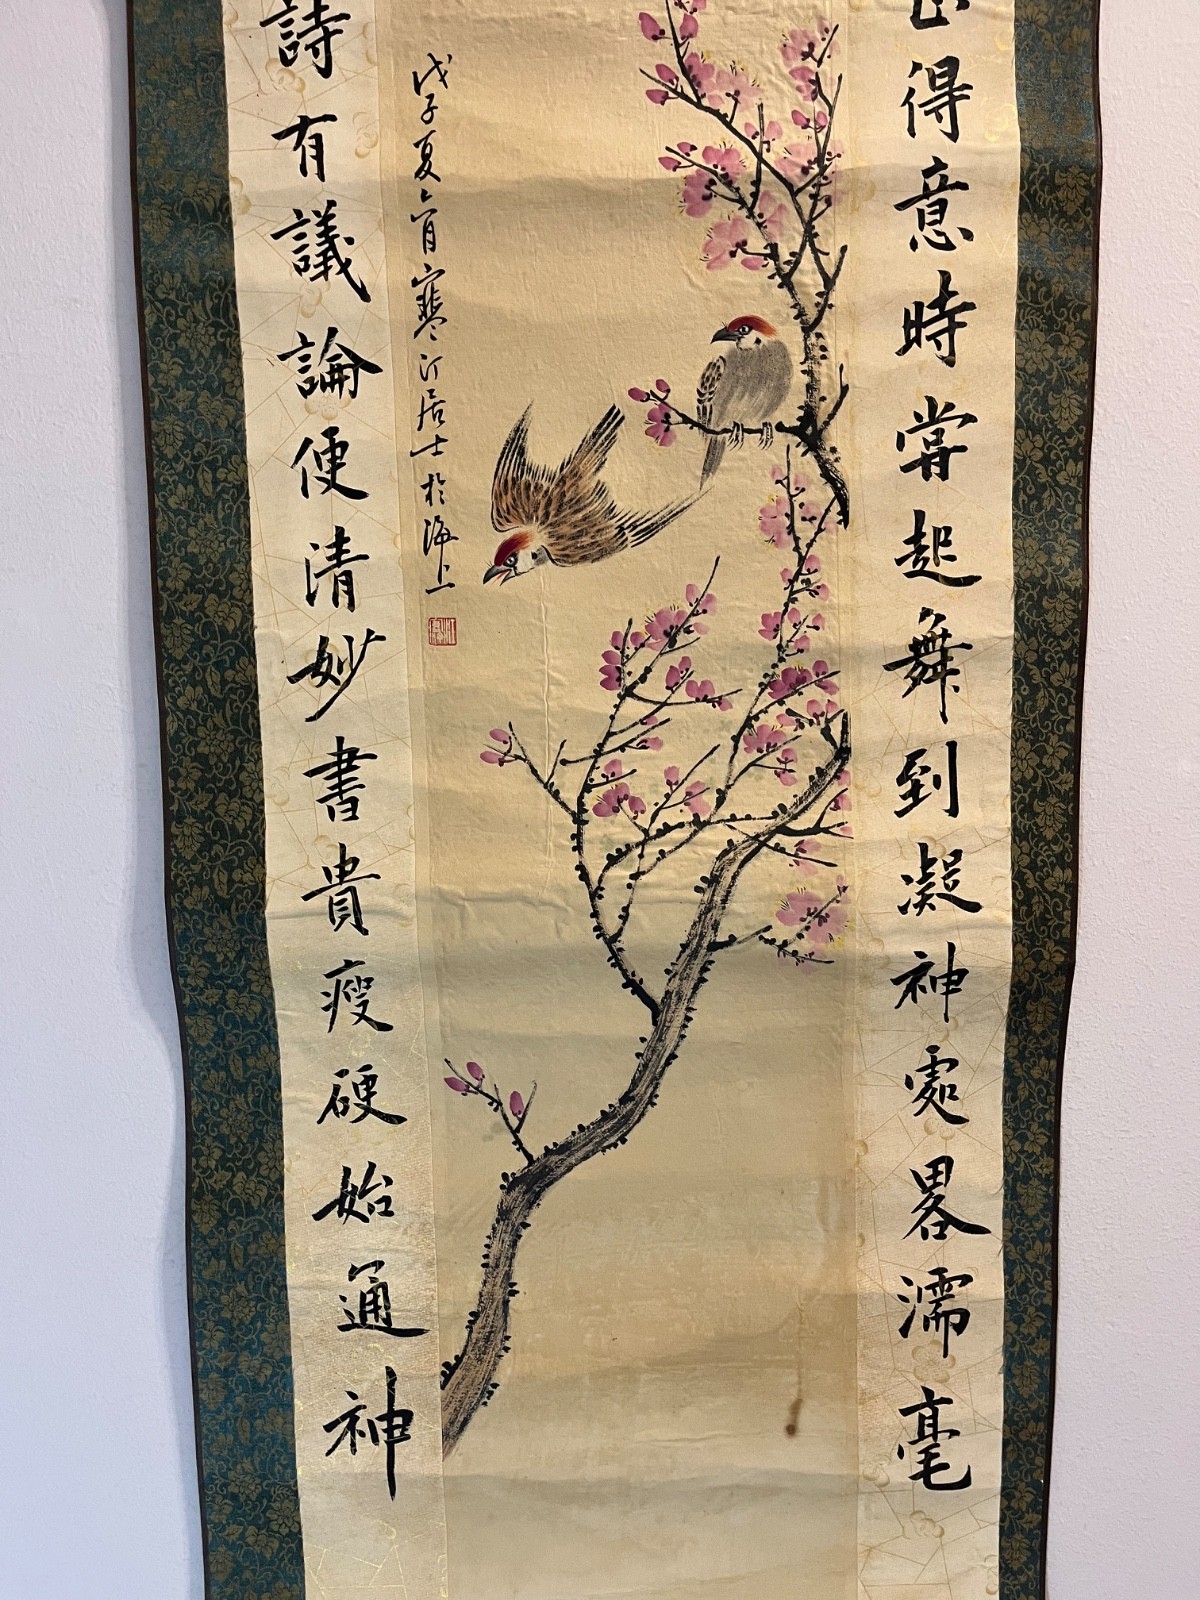 得意時嘗起舞到凝神處畧濡毫
戊子夏六月寒汀居士於海上
詩有議論便清妙書貴瘦硬始通神